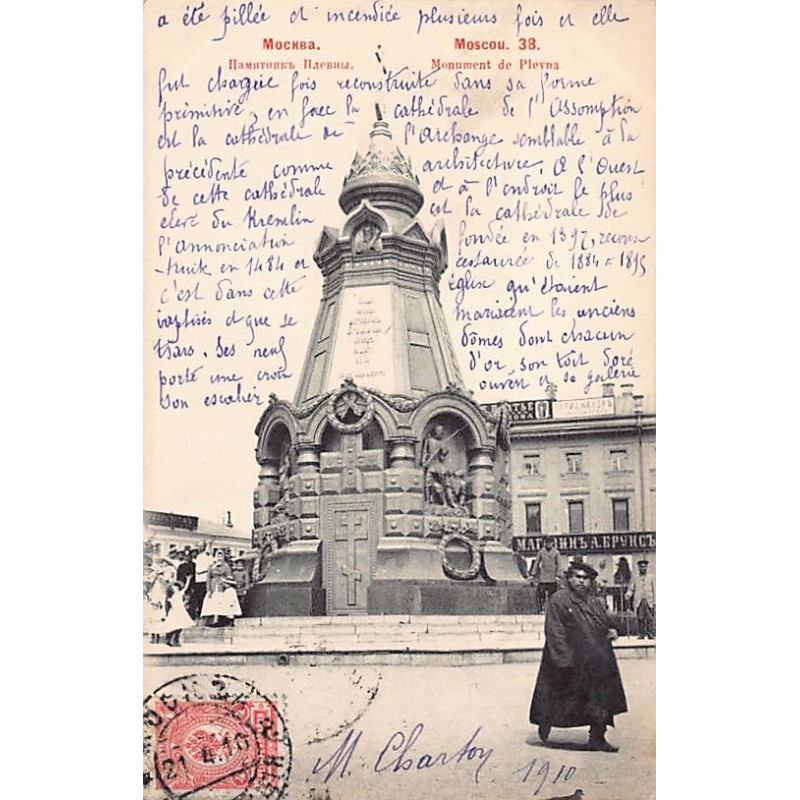 a été pillée et incendiée plusieurs fois et elle
Москва. Moscou. 38.
Памятникъ Плевны. Monument de Plevna
fut chaque fois reconstruite dans sa forme
primitive, en face la cathédrale de l'Assomption
est la cathédrale de l'Archange semblable à la
précédente comme architecture. A l'Ouest
de cette cathédrale et à l'endroit le plus
élevé du Kremlin est la cathédrale de
l'Annonciation fondée en 1397, recons
-truite en 1484 et restaurée de 1884 à 1895
c'est dans cette église qu'étaient
baptisés et que se mariaient les anciens
tsars. Ses neuf dômes dont chacun
porte une croix d'or, son toit doré
son escalier ouvert et sa galerie
МАГАЗИНЪ А. БРУНСЪ
МОСКВА
21.4.10
M Charton 1910